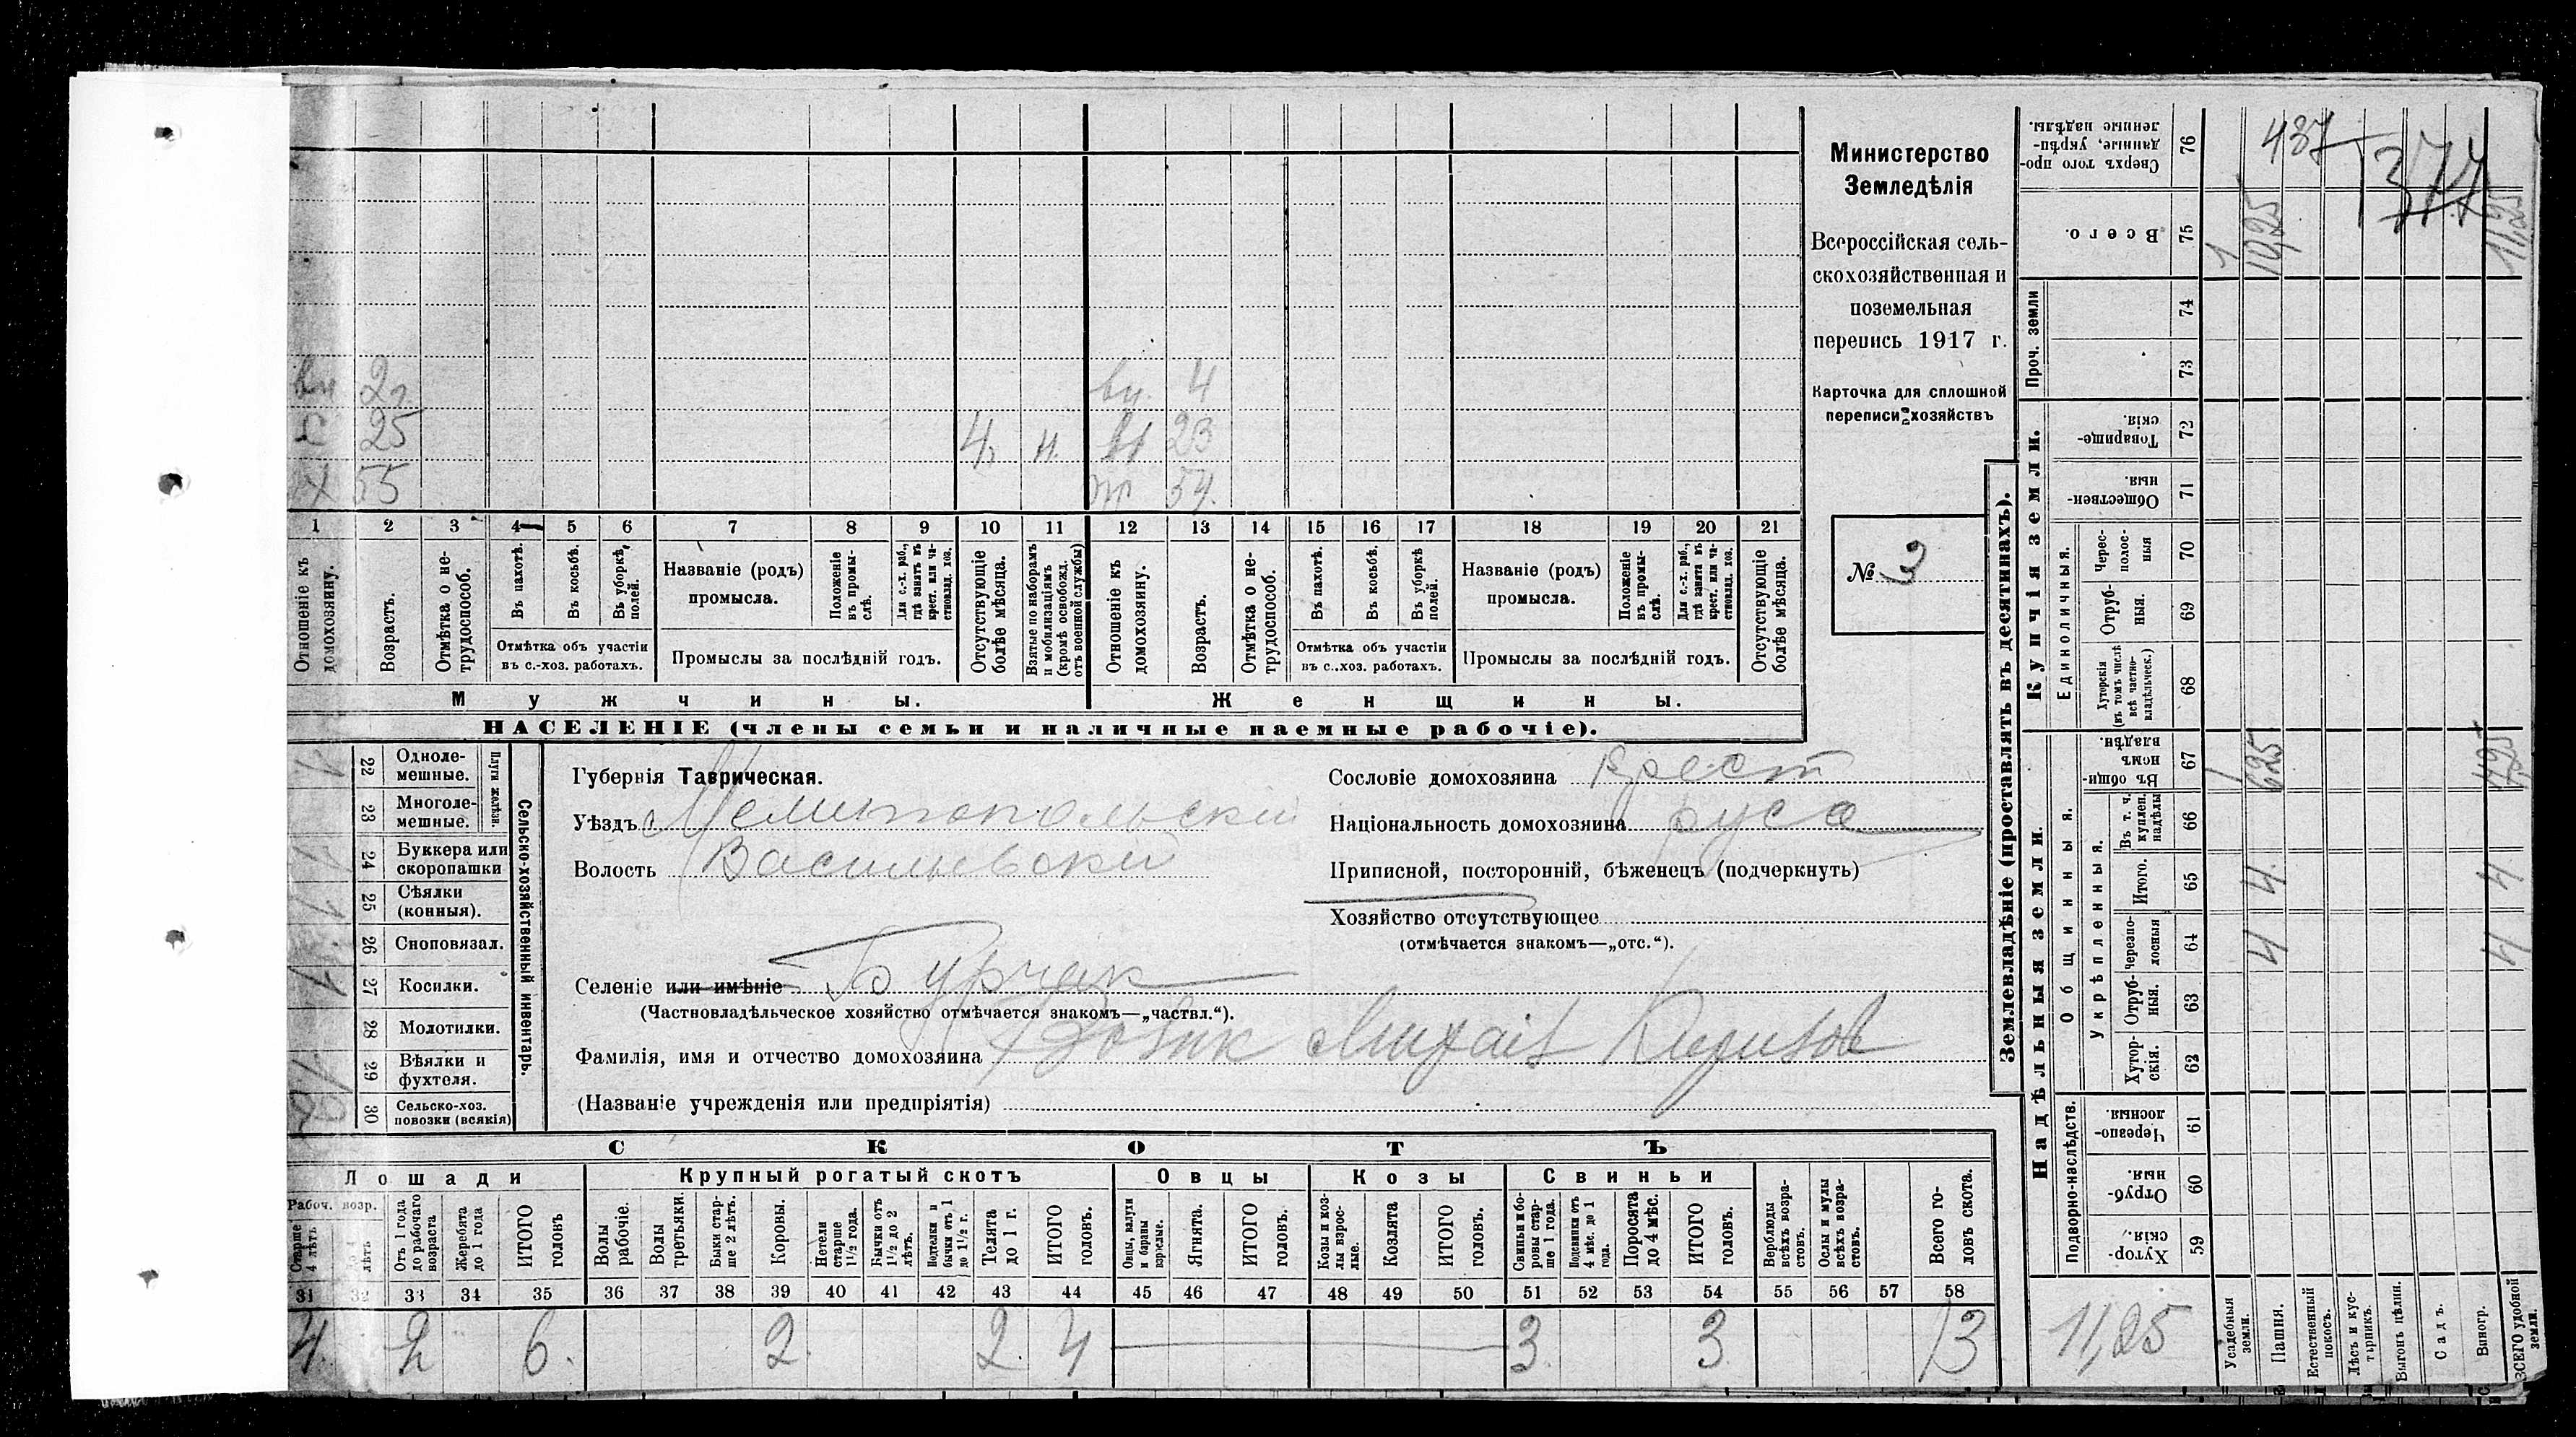 Министерство
Земледѣлія
Всероссійская сель-
скохозяйственная и
поземельная
перепись 1917 г.
Карточка для сплошной
переписи хозяйствъ
№ 3
вн 2 г. вн. 4
с 25 4 н. 23
х 55 ж 54.
1 2 3 4 5 6 7 8 9 10 11 12 13 14 15 16 17 18 19 20 21
Отношеніе къ домохозяину.
Возрастъ.
Отмѣтка о не-трудоспособ.
Въ пахотѣ.
Въ косьбѣ.
Въ уборкѣ полей.
Отмѣтка объ участіи
въ с.-хоз. работахъ.
Названіе (родъ)
промысла.
Положеніе въ промы-слѣ.
Для с.-х. раб., гдѣ занятъ въ крест. или ча-стновлад. хоз.
Промыслы за послѣдній годъ.
Отсутствующіе болѣе мѣсяца.
Взятые по наборамъ и мобилизаціямъ (кромѣ освобожд. отъ военной службы)
Отношеніе къ домохозяину.
Возрастъ.
Отмѣтка о не-трудоспособ.
Въ пахотѣ.
Въ косьбѣ.
Въ уборкѣ полей.
Отмѣтка объ участіи
въ с.-хоз. работахъ.
Названіе (родъ)
промысла.
Положеніе въ промы-слѣ.
Для с.-х. раб., гдѣ занята въ крест. или ча-стновлад. хоз.
Промыслы за послѣдній годъ.
Отсутствующіе болѣе мѣсяца.
Мужчины. Женщины.
НАСЕЛЕНІЕ (члены семьи и наличные наемные рабочіе).
22 Одноле-мешные.
23 Многоле-мешные.
Плуги желѣзн.
24 Буккера или скоропашки
25 Сѣялки (конныя).
26 Сноповязал.
27 Косилки.
28 Молотилки.
29 Вѣялки и фухтеля.
30 Сельско-хоз. повозки (всякія)
Сельско-хозяйственный инвентарь.
Губернія Таврическая.
Уѣздъ Мелитопольскій
Волость Васильевской
Селеніе или имѣніе Бурчак
(Частновладѣльческое хозяйство отмѣчается знакомъ—„частвл.“).
Фамилія, имя и отчество домохозяина Михаил
(Названіе учрежденія или предпріятія)
Сословіе домохозяина Крест
Національность домохозяина русс
Приписной, посторонній, бѣженецъ (подчеркнуть)
Хозяйство отсутствующее
(отмѣчается знакомъ—„отс.“).
СКОТЪ
Лошади Крупный рогатый скотъ Овцы Козы Свиньи
Рабоч. возр.
Старше 4 лѣтъ
До 4 лѣтъ
Отъ 1 года до рабочаго возраста
Жеребята до 1 года
ИТОГО головъ
Волы рабочіе.
Волы третьяки.
Быки стар-ше 2 лѣтъ.
Коровы.
Нетели старше 1½ года.
Бычки отъ 1½ до 2 лѣтъ.
Подтелки и бычки отъ 1 до 1½ г.
Телята до 1 г.
ИТОГО головъ.
Овцы, валухи и бараны взрослые.
Ягнята.
ИТОГО головъ.
Козы и коз-лы взрос-лые.
Козлята
ИТОГО головъ.
Свиньи и бо-ровы стар-ше 1 года.
Подсвинки отъ 4 мѣс. до 1 года.
Поросята до 4 мѣс.
ИТОГО головъ.
Верблюды всѣхъ возра-стовъ.
Ослы и мулы всѣхъ возра-стовъ.
Всего го-ловъ скота.
31 32 33 34 35 36 37 38 39 40 41 42 43 44 45 46 47 48 49 50 51 52 53 54 55 56 57 58
4. 2 6. 2. 2. 4 3. 3. 13
Землевладѣніе (проставлять въ десятинахъ).
Купчія земли.
Проч. земли
Сверхъ того про-данные, укрѣп-ленные надѣлы. 76 437 1377
Всего. 75 1 10,25 11,25
74
73
Товарище-скія 72
Обществен-ныя. 71
Единоличныя.
Черес-полос-ныя 70
Отруб-ныя. 69
Хуторскія (въ томъ числѣ всѣ частно-владѣльческ.) 68
Надѣльныя земли.
Общинныя.
Въ общи-номъ владѣн. 67 1 6,25
Укрѣпленныя.
Въ т. ч. куплен. надѣлы 66
Итого. 65 4 4
Черезпо-лосныя 64 4 4
Отруб-ныя. 63
Хутор-скія. 62
Подворно-наслѣдств.
Черезпо-лосныя 61
Отруб-ныя. 60
Хутор-скія. 59
11,25
Усадебныя земли.
Пашня.
Естественный покосъ.
Лѣсъ и кус-тарникъ.
Выгонъ цѣлин.
Садъ.
Виногр.
ВСЕГО удобной земли.